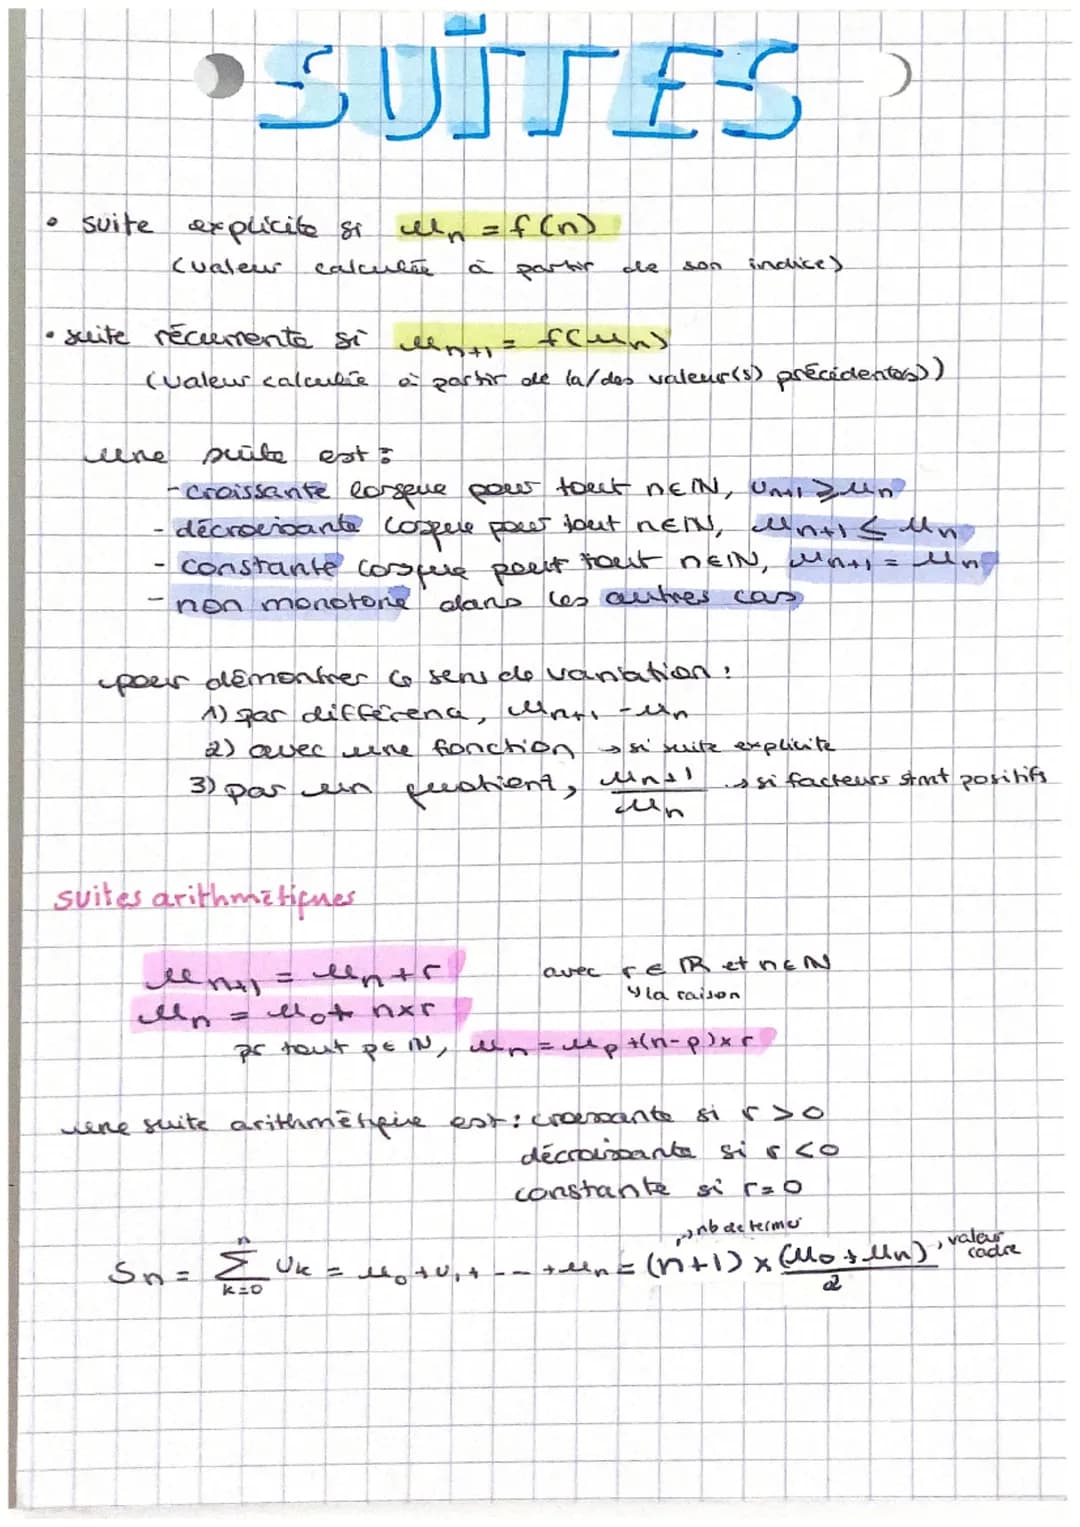 SUITES
• suite explicite si un = f(n)
(valeur calculée à partir de son indice)
• suite récurrente si un+1 = f(un)
(valeur calculée à partir de la/des valeur(s) précédente(s))
une suite est :
- croissante lorsque pour tout n∈ℕ, un+1 ⩾ un
- décroissante lorsque pour tout n∈ℕ, un+1 ≤ un
- constante lorsque pour tout n∈ℕ, un+1 = un
- non monotone dans les autres cas
pour démontrer le sens de variation :
1) par différence, un+1 - un
2) avec une fonction → si suite explicite
3) par un quotient, un+1/un → si facteurs stmt positifs
suites arithmétiques
un+1 = un + r avec r ∈ ℝ et n ∈ ℕ
↳ la raison
un = u0 + n×r
pr tout p∈ℕ, un = up + (n-p)×r
une suite arithmétique est : croissante si r > 0
décroissante si r < 0
constante si r = 0
→ nb de termes
Sn = n∑k=0 Uk = u0 + u1 + --- + un = (n+1) × (u0 + un)/2 , valeur cadre